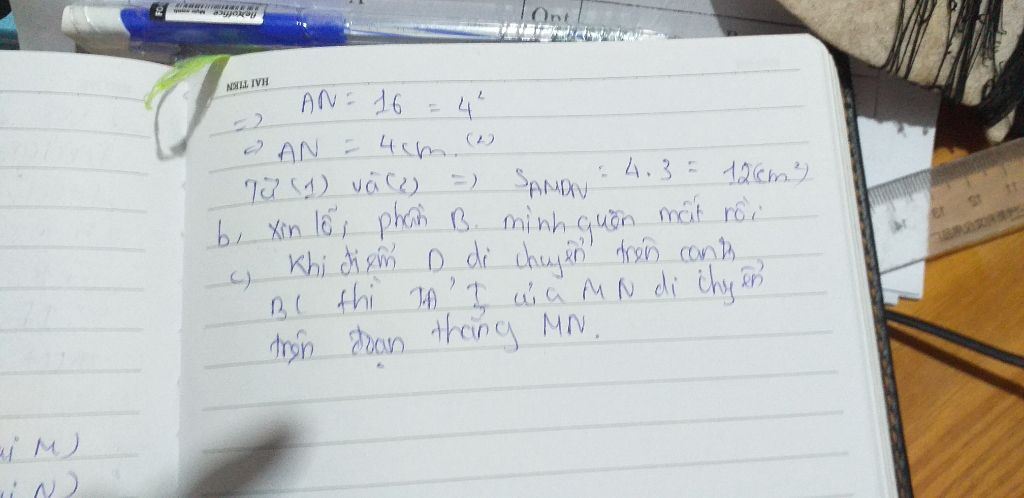 flexoffice
FO
Opt
HAI TIEN
=> AN = 16 = 4²
=> AN = 4cm. (2)
Từ (1) và (2) => SAMDN = 4.3 = 12(cm²)
b, xin lỗi phần B. mình quên mất rồi
c) Khi điểm D di chuyển trên cạnh
BC thì TĐ I của MN di chuyển
trên đoạn thẳng MN.
ại M)
ại N)
11 12 13